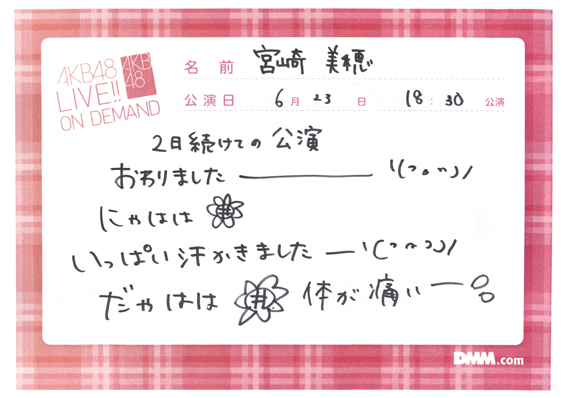 AKB48
LIVE!!
ON DEMAND
AKB
48
名前 宮崎 美穂
公演日 6月23日 18:30 公演
2日続けての公演
おわりました――――
にゃはは
いっぱい汗かきました―
だゃはは 体が痛い―。
DMM.com